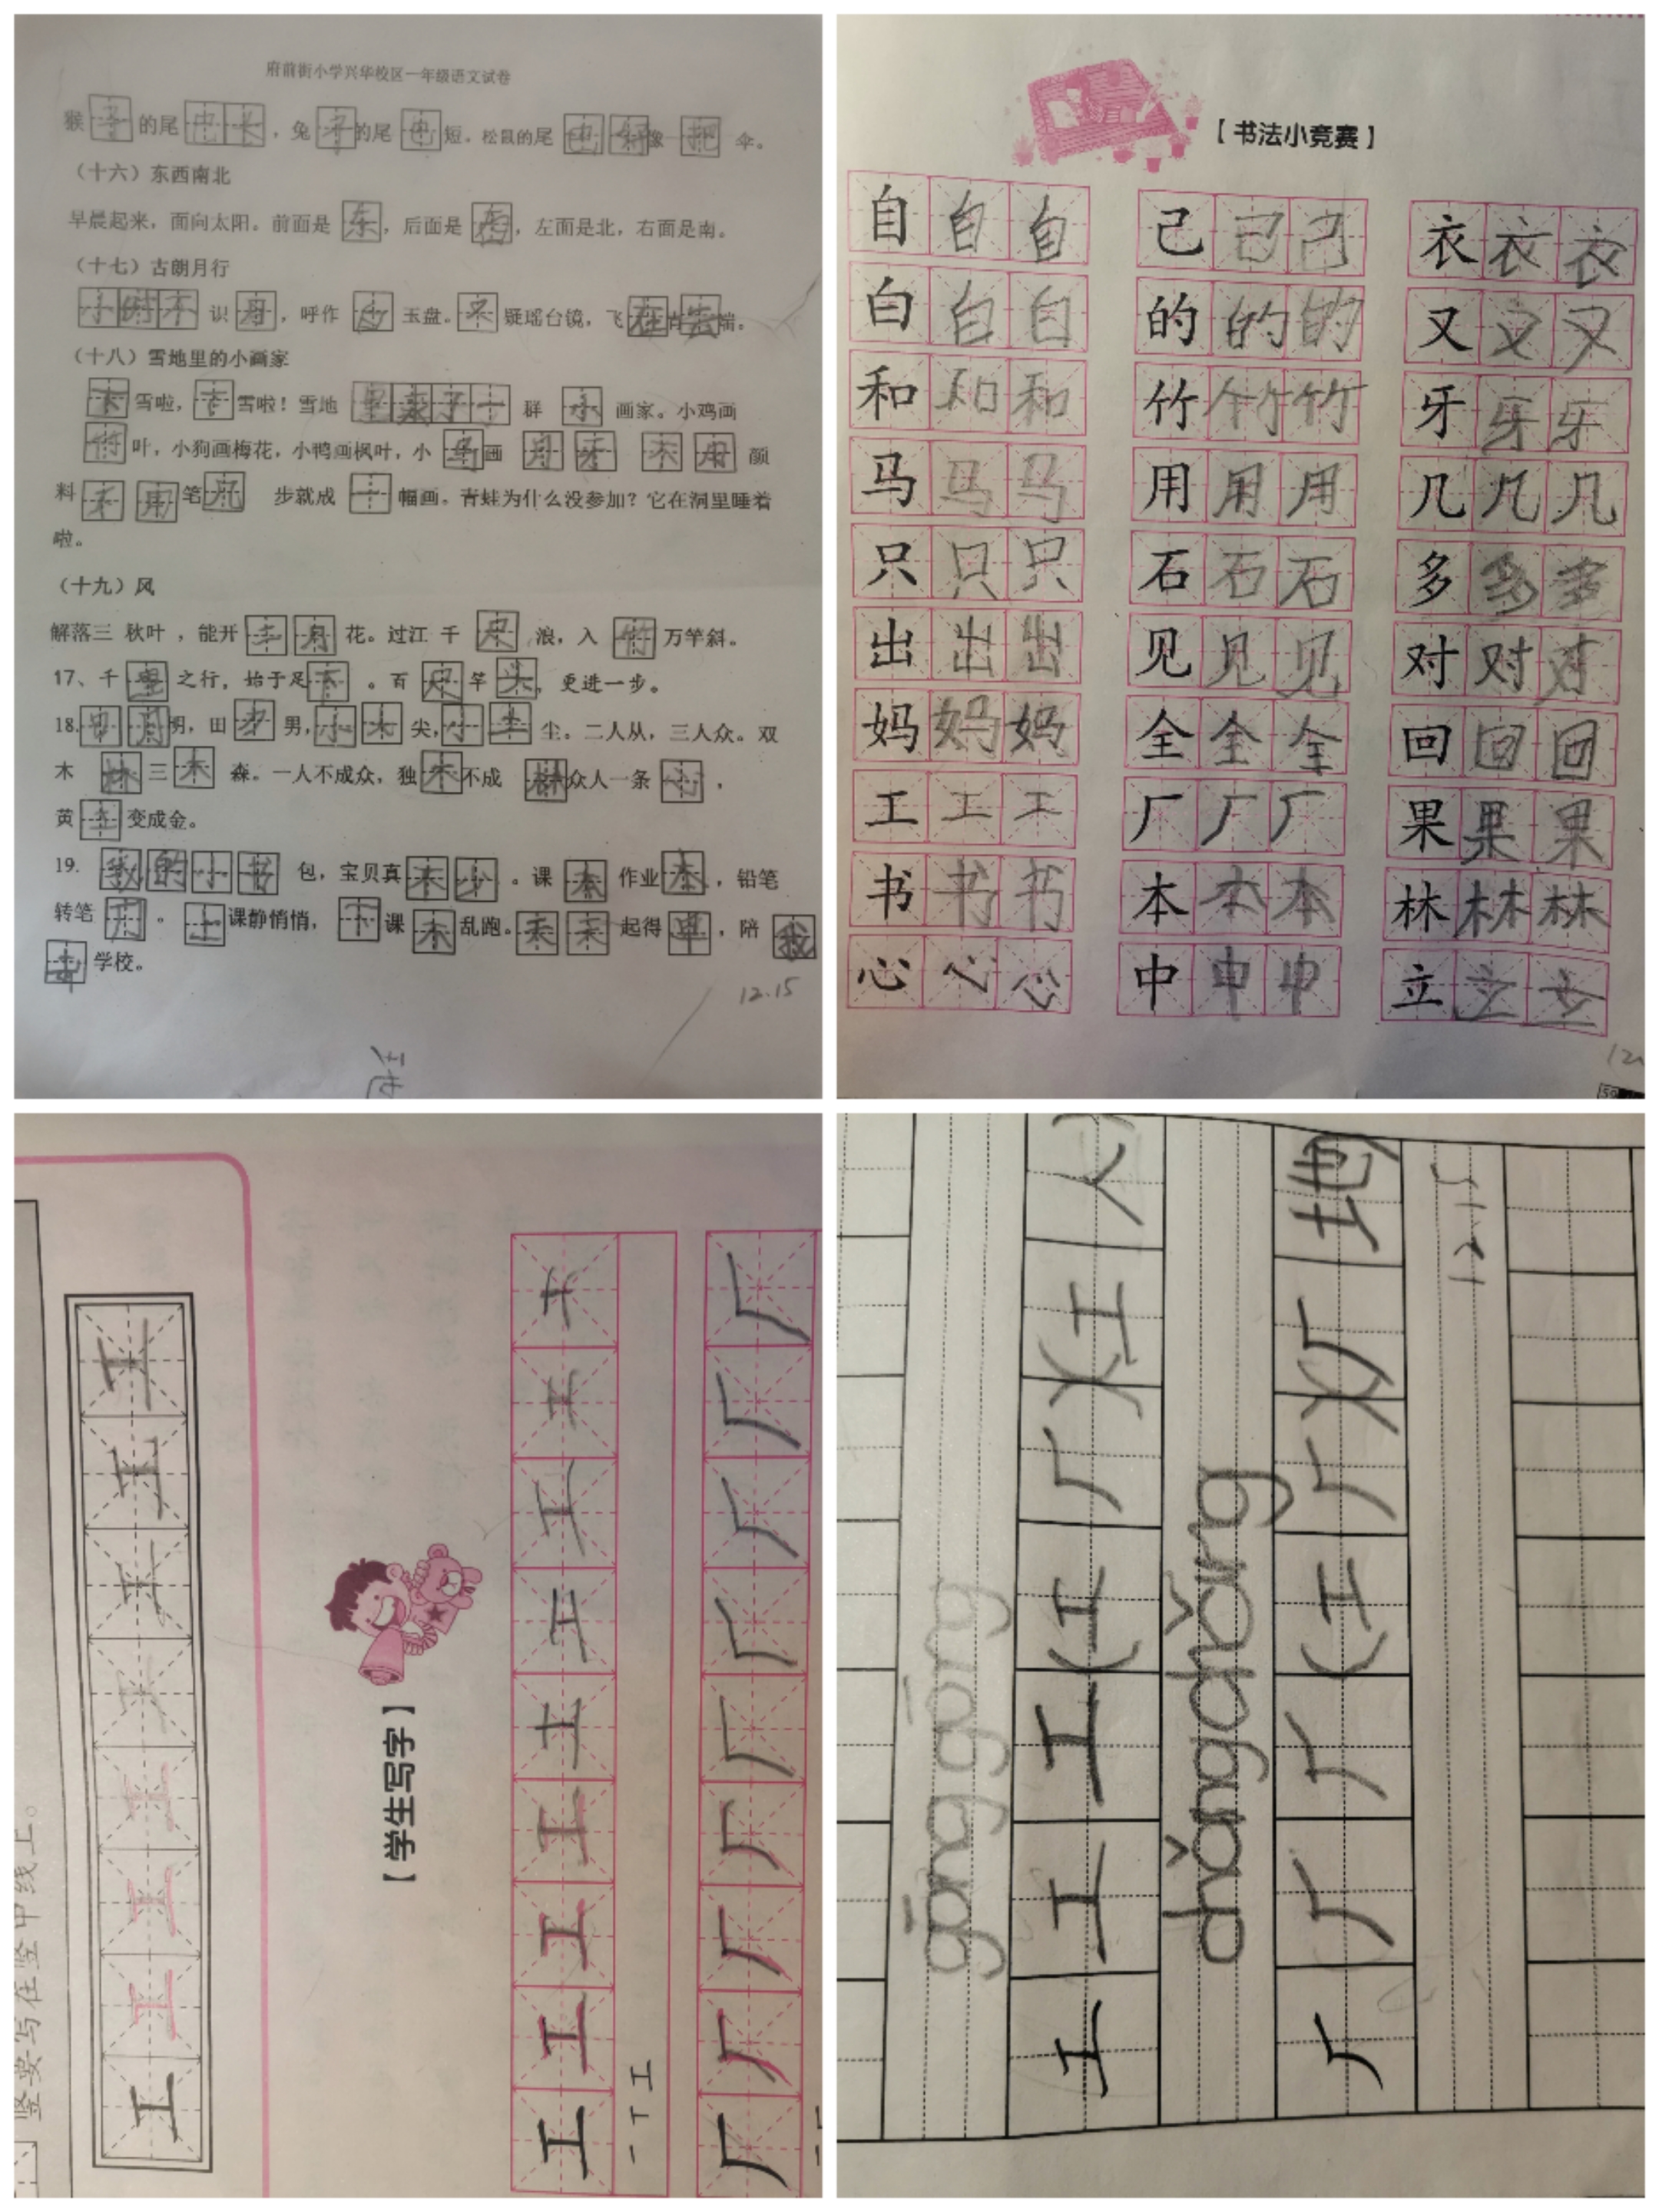 府前街小学兴华校区一年级语文试卷
猴子的尾巴长，兔子的尾巴短。松鼠的尾巴好像一把伞。
（十六）东西南北
早晨起来，面向太阳。前面是东，后面是西，左面是北，右面是南。
（十七）古朗月行
小时不识月，呼作白玉盘。又疑瑶台镜，飞在青云端。
（十八）雪地里的小画家
下雪啦，下雪啦！雪地里来了一群小画家。小鸡画
竹叶，小狗画梅花，小鸭画枫叶，小马画月牙不用颜
料不用笔几步就成一幅画。青蛙为什么没参加？它在洞里睡着
啦。
（十九）风
解落三秋叶，能开二月花。过江千尺浪，入竹万竿斜。
17、千里之行，始于足下。百尺竿头，更进一步。
18.日月明，田力男，小大尖，小土尘。二人从，三人众。双
木林三木森。一人不成众，独木不成林众人一条心，
黄土变成金。
19.我的小书包，宝贝真不少。课本作业本，铅笔
转笔刀。上课静悄悄，下课不乱跑。天天起得早，陪我
去学校。
12.15
【书法小竞赛】
自自自 己己己 衣衣衣
白白白 的的的 又又又
和和和 竹竹竹 牙牙牙
马马马 用用用 几几几
只只只 石石石 多多多
出出出 见见见 对对对
妈妈妈 全全全 回回回
工工工 厂厂厂 果果果
书书书 本本本 林林林
心心心 中中中 立立立
59
竖要写在竖中线上。
工工工工工工工工
【学生写字】
工工工工工工工工工
一丅工
厂厂厂厂厂厂厂厂厂
gōng gōng
工工工（工厂）（工人
chǎngchǎng
厂厂厂（工厂）（厂